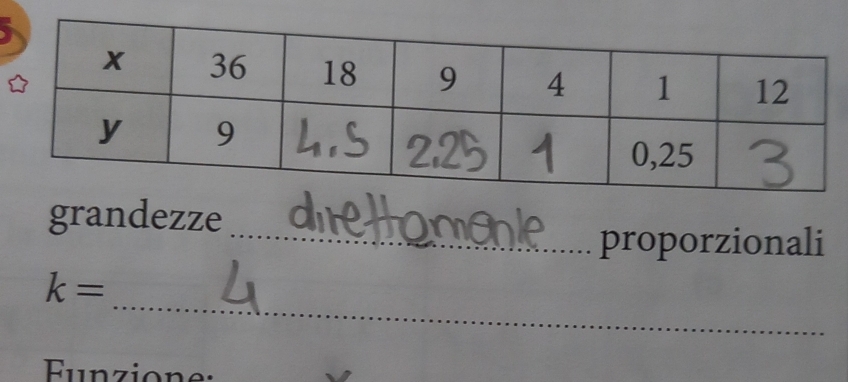 5
x 36 18 9 4 1 12
y 9 4.5 2.25 1 0,25 3
grandezze direttamente proporzionali
k = 4
Funzione: